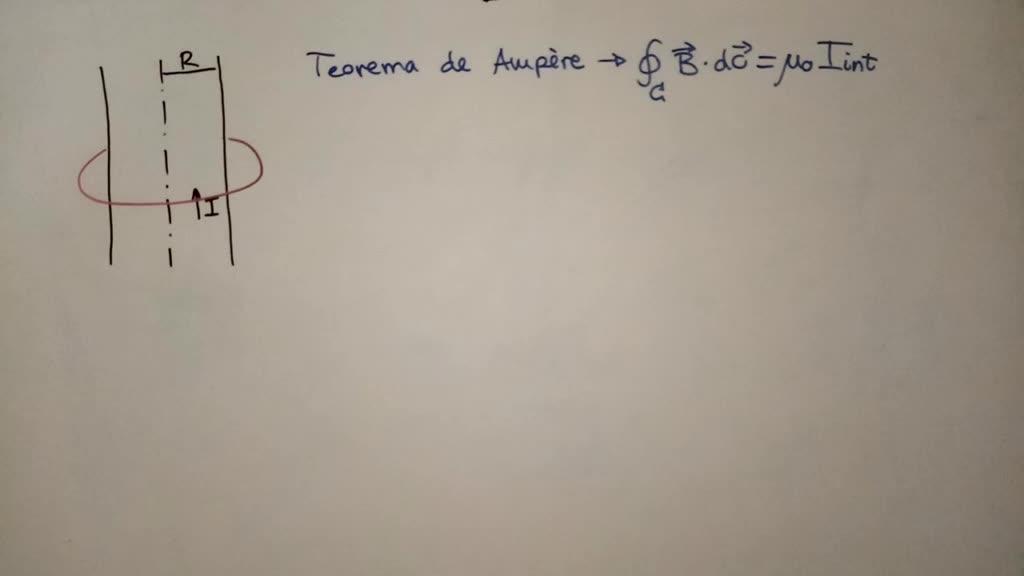 R
Teorema de Ampère → ∮ B⃗ · dc⃗ = μ₀ Iint
C
I